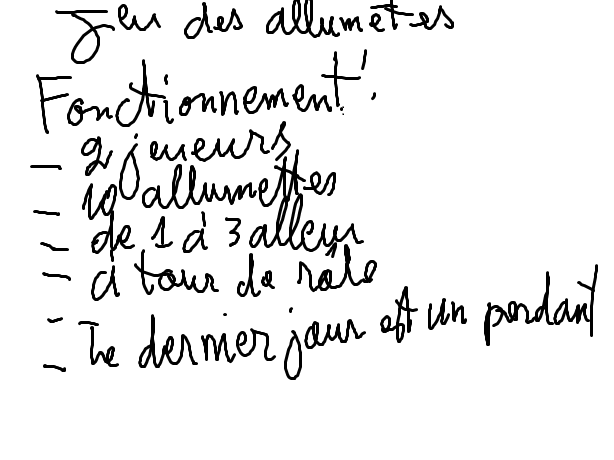 Jeu des allumettes
Fonctionnement :
- 2 jeueurs
- 10 allumettes
- de 1 à 3 alleur
- à tour de rôle
-
- The dernier jour est un perdant